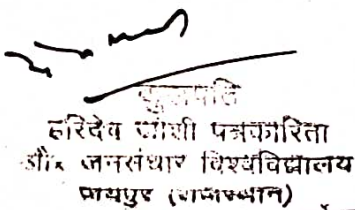 कुलपति
हरिदेव जोशी पत्रकारिता
और जनसंचार विश्वविद्यालय
जयपुर (राजस्थान)